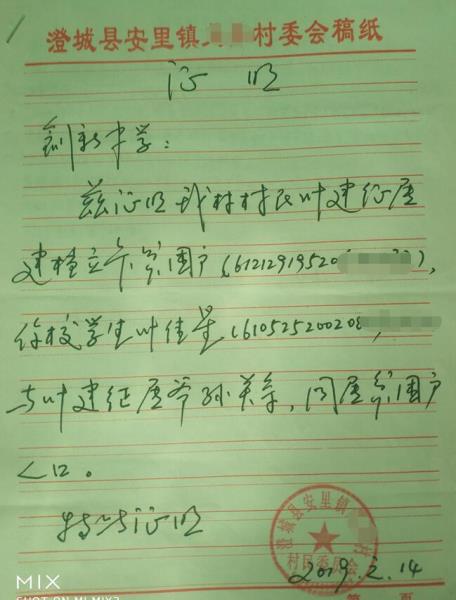 澄城县安里镇 村委会稿纸
证 明
创新中学：
兹证明我村村民叶建征属
建档立卡贫困户(61212919520 ),
你校学生叶佳星(61052520020 ),
与叶建征属爷孙关系，同属贫困户
人口。
特此证明
澄城县安里镇 村
村民委员会
2019.2.14
第 页
MIX
SHOT ON MI MIX2